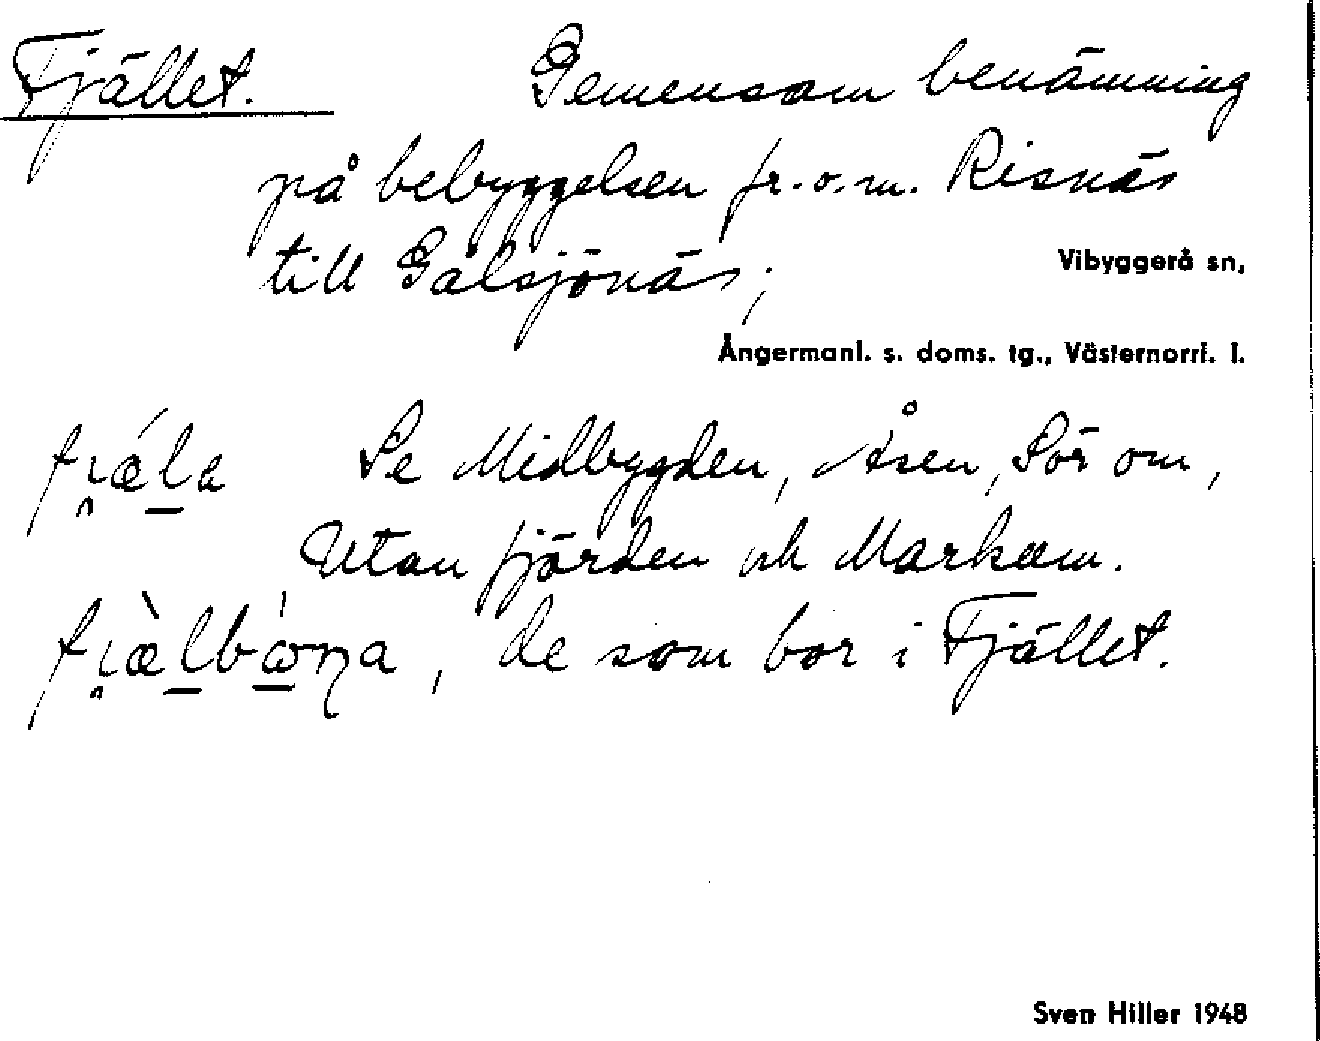 Fjället. Gemensam benämning
på bebyggelsen fr.o.m. Risnäs
till Gålsjönäs;
Vibyggerå sn,
Ångermanl. s. doms. tg., Västernorrl. l.
fi̯ǽla Se Midbygden, Åsen, Sör om,
Utan fjärden och Markom.
, de som bor i Fjället.
Sven Hiller 1948